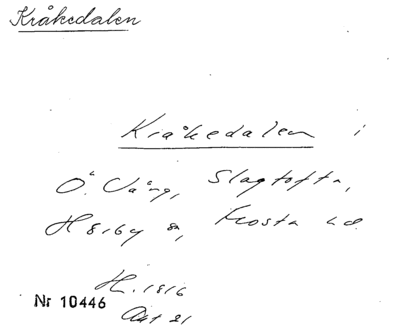 Kråkedalen
Kråkedalen i
Ö. Vång, Slagtofta,
Hörby sn, Frosta hd.
H. 1816
Nr 10446
Akt 21